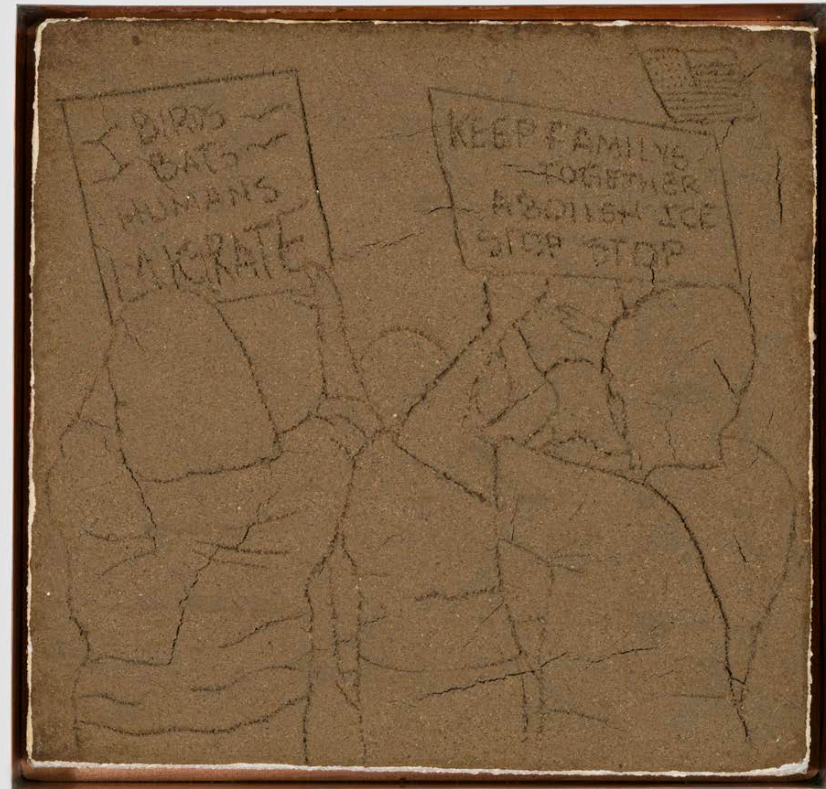 BIRDS
BATS
HUMANS
MIGRATE
KEEP FAMILYS
TOGETHER
ABOLISH ICE
STOP STOP